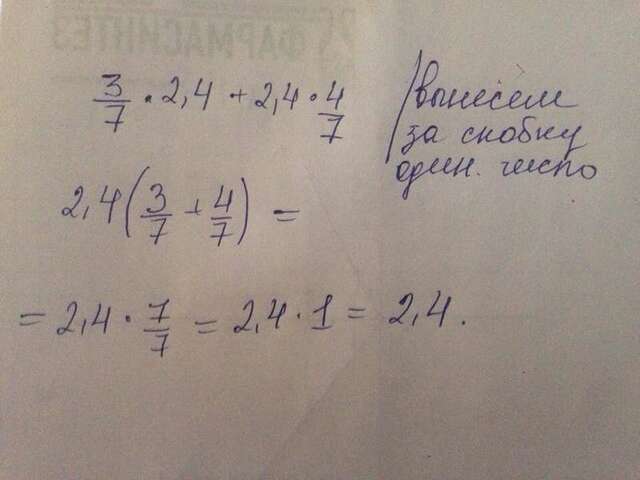 ФАРМАСИНТЕЗ
3/7 · 2,4 + 2,4 · 4/7
вынесем
за скобку
один. число
2,4(3/7 + 4/7) =
= 2,4 · 7/7 = 2,4 · 1 = 2,4.